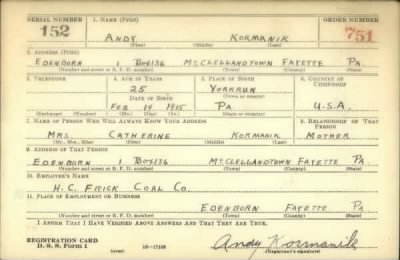 SERIAL NUMBER 1. NAME (Print) ORDER NUMBER
152 ANDY KORMANIK 751
(First) (Middle) (Last)
2. ADDRESS (Print)
EDENBORN 1 BOX136 McCLELLANDTOWN FAYETTE PA.
(Number and street or R. F. D. number) (Town) (County) (State)
3. TELEPHONE 4. AGE IN YEARS 5. PLACE OF BIRTH 6. COUNTRY OF CITIZENSHIP
25 YORKRUN
DATE OF BIRTH (Town or county)
FEB 19 1915 PA. U.S.A.
(Exchange) (Number) (Mo.) (Day) (Yr.) (State or country)
7. NAME OF PERSON WHO WILL ALWAYS KNOW YOUR ADDRESS 8. RELATIONSHIP OF THAT PERSON
MRS. CATHERINE KORMANIK MOTHER
(Mr., Mrs., Miss) (First) (Middle) (Last)
9. ADDRESS OF THAT PERSON
EDENBORN 1 BOX136 McCLELLANDTOWN FAYETTE PA.
(Number and street or R. F. D. number) (Town) (County) (State)
10. EMPLOYER'S NAME
H.C. FRICK COAL CO.
11. PLACE OF EMPLOYMENT OR BUSINESS
EDENBORN FAYETTE PA
(Number and street or R. F. D. number) (Town) (County) (State)
I AFFIRM THAT I HAVE VERIFIED ABOVE ANSWERS AND THAT THEY ARE TRUE.
REGISTRATION CARD
D. S. S. Form 1 (over) 16—17105 Andy Kormanik
(Registrant's signature)